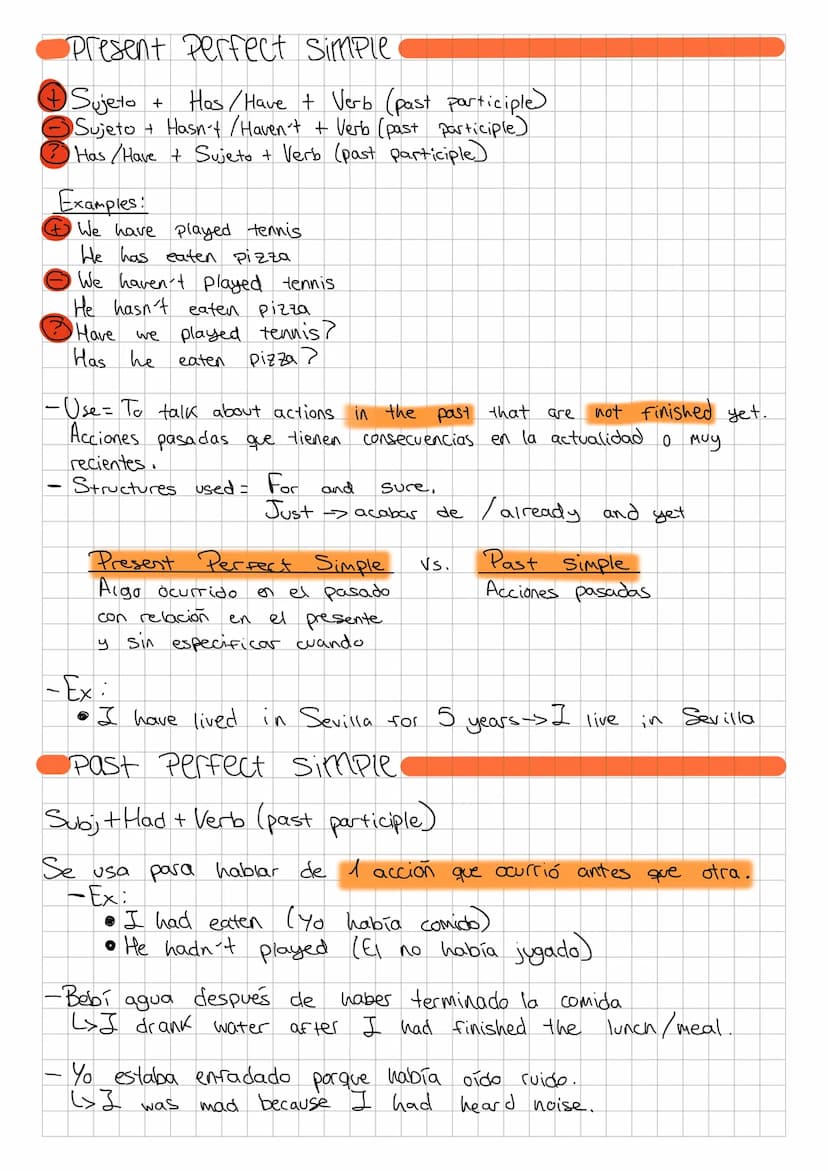 Present Perfect Simple
+ Sujeto + Has/Have + Verb (past participle)
- Sujeto + Hasn't/Haven't + Verb (past participle)
? Has/Have + Sujeto + Verb (past participle)
Examples:
+ We have played tennis
He has eaten pizza
- We haven't played tennis
He hasn't eaten pizza
? Have we played tennis?
Has he eaten pizza?
- Use= To talk about actions in the past that are not finished yet.
Acciones pasadas que tienen consecuencias en la actualidad o muy
recientes.
- Structures used= For and sure.
Just -> acabar de /already and yet
Present Perfect Simple vs. Past simple
Algo ocurrido en el pasado Acciones pasadas
con relación en el presente
y sin especificar cuando
- Ex:
• I have lived in Sevilla for 5 years -> I live in Sevilla
Past Perfect Simple
Subj + Had + Verb (past participle)
Se usa para hablar de 1 acción que ocurrió antes que otra.
- Ex:
• I had eaten (Yo había comido)
• He hadn't played (El no había jugado)
- Bebí agua después de haber terminado la comida
↳ I drank water after I had finished the lunch/meal.
- Yo estaba enfadado porque había oído ruido.
↳ I was mad because I had heard noise.